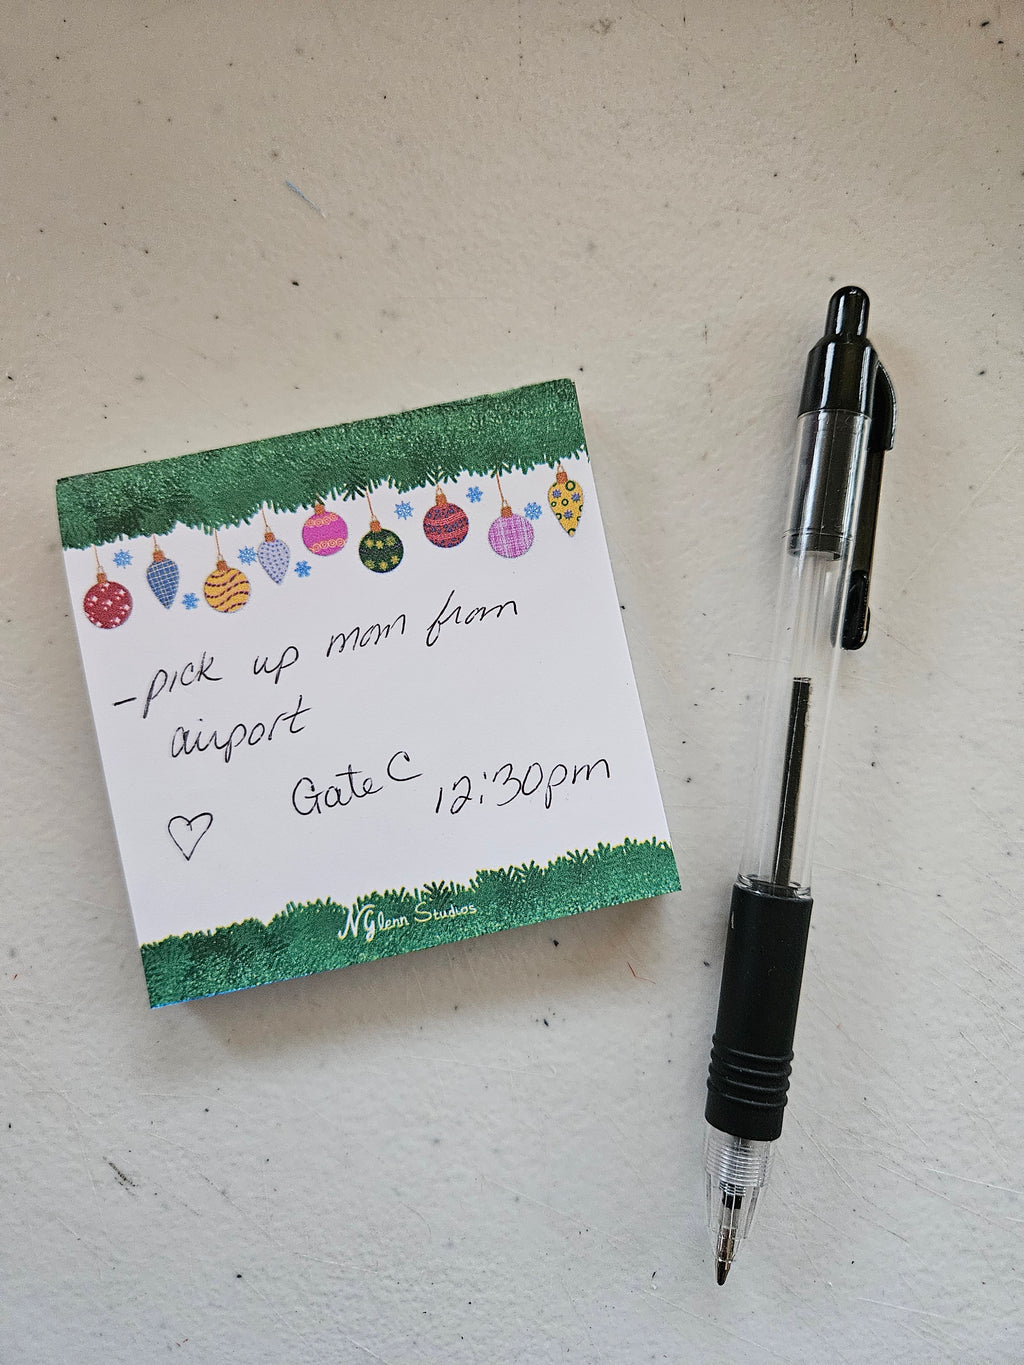 -pick up mom from
airport
Gate C 12:30pm
NGlenn Studios